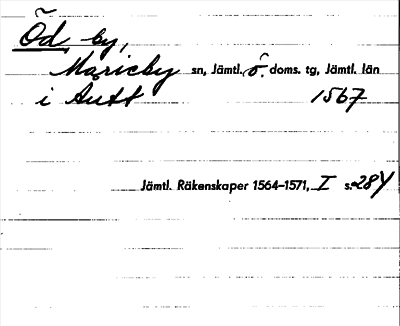 Öd by,
Marieby sn, Jämtl. ö. doms. tg, Jämtl. län
i Autt 1567
Jämtl. Räkenskaper 1564–1571, I s. 284